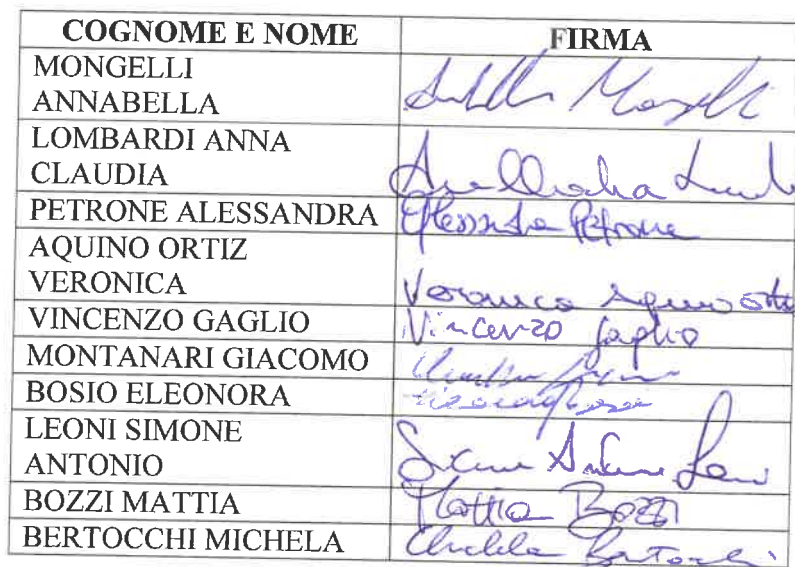 COGNOME E NOME FIRMA
MONGELLI
ANNABELLA
LOMBARDI ANNA
CLAUDIA
PETRONE ALESSANDRA Alessandra Petrone
AQUINO ORTIZ
VERONICA Veronica Aquino Ortiz
VINCENZO GAGLIO Vincenzo Gaglio
MONTANARI GIACOMO
BOSIO ELEONORA
LEONI SIMONE
ANTONIO Simone Antonio Leoni
BOZZI MATTIA Mattia Bozzi
BERTOCCHI MICHELA Michela Bertocchi